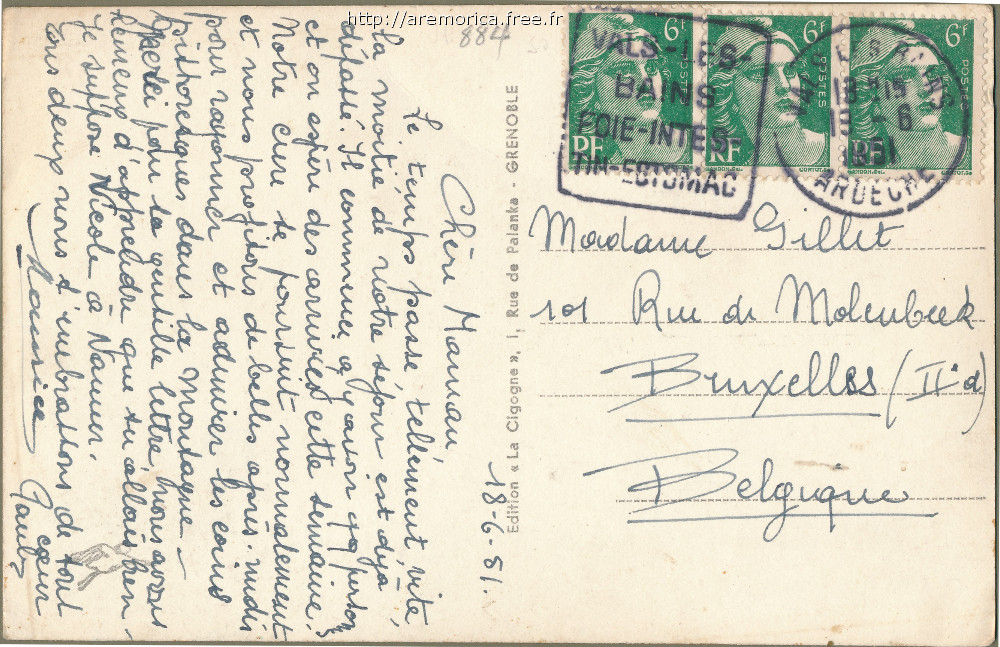 http://aremorica.free.fr
884
6F
6F
6F
POSTES
POSTES
RF
RF
VALS-LES-
BAINS
FOIE-INTES-
TIN-ESTOMAC
VALS LES BAINS
18 H 15
19 - 6
1951
ARDECHE
Edition « La Cigogne », 1, Rue de Palanka - GRENOBLE
Madame Gillet
101 Rue de Molenbeek
Bruxelles (IIe d)
Belgique
18-6-51.
Chère Maman,
Le temps passe tellement vite,
la moitié de notre séjour est déjà
dépassé. Il commence à y avoir + personnes
et on espère des arrivées cette semaine.
Notre cure se poursuit normalement
et nous profitons de belles après-midis
pour rayonner et admirer les coins
pithoresques dans la Montagne -
pour ta gentille lettre, nous avons
heureux d'apprendre que tu allais bien -
Je suppose Nicole à Namur.
Tous deux nous t'embrassons de tout
cœur
Maurice